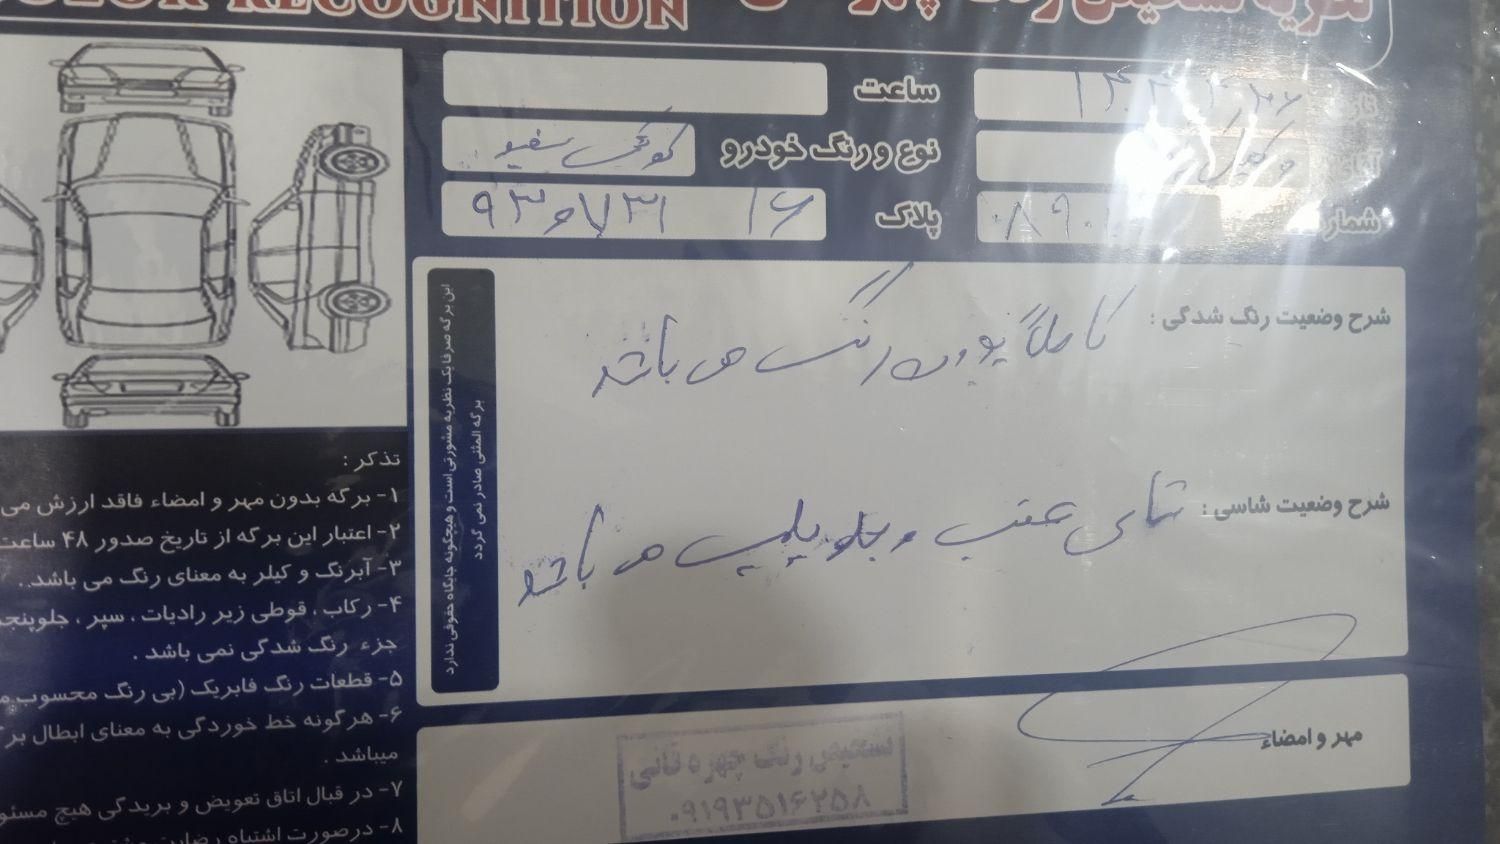 COLOR RECOGNITION
نظریه تشخیص رنگ
ساعت
نوع و رنگ خودرو
کوئیک سفید
پلاک ۱۶ ۹۳و۷۳۱
شماره
شرح وضعیت رنگ شدگی :
کاملاً بدون رنگ می باشد
شرح وضعیت شاسی :
شاسی عقب و جلو پلمپ می باشد
مهر و امضاء
تشخیص رنگ چهره قانی
۰۹۱۹۳۵۱۶۲۵۸
این برگه صرفا یک نظریه مشورتی است و هیچگونه جایگاه حقوقی ندارد
برگه المثنی صادر نمی گردد
تذکر :
۱- برگه بدون مهر و امضاء فاقد ارزش می
۲- اعتبار این برگه از تاریخ صدور ۴۸ ساعت
۳- آبرنگ و کیلر به معنای رنگ می باشد..
۴- رکاب ، قوطی زیر رادیات ، سپر ، جلوپنجر
جزء رنگ شدگی نمی باشد .
۵- قطعات رنگ فابریک (بی رنگ محسوب م
۶- هرگونه خط خوردگی به معنای ابطال بر
میباشد .
۷- در قبال اتاق تعویض و بریدگی هیچ مسئو
۸- درصورت اشتباه